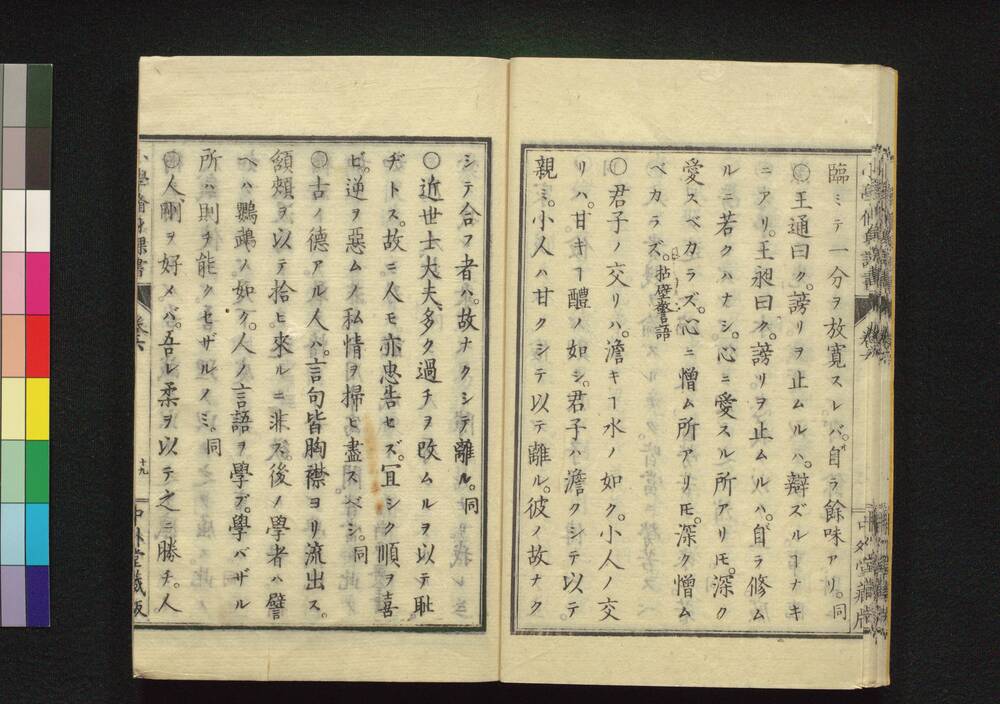 臨ミテ一分ヲ放寛スレバ。自ラ餘味アリ。同
○王通曰ク。謗リヲ止ムルハ。辯ズルヿナキ
ニアリ。王昶曰ク。謗リヲ止ムルハ。自ラ修ム
ルニ若クハナシ。心ニ愛スル所アリトモ。深ク
愛スベカラズ。心ニ憎ム所アリトモ。深ク憎ム
ベカラズ。拈屏警語
○君子ノ交リハ。澹キヿ水ノ如ク。小人ノ交
リハ。甘キヿ醴ノ如シ。君子ハ澹クシテ以テ
親ミ。小人ハ甘クシテ以テ離ル。彼ノ故ナク
シテ合フ者ハ。故ナクシテ離ル。同
○近世士大夫。多ク過チヲ改ムルヲ以テ耻
ヂトス。故ニ人モ亦忠告セズ。冝シク順ヲ喜
ビ。逆ヲ惡ムノ私情ヲ掃ヒ盡スベシ。同
○古ノ德アル人ハ。言句皆胸襟ヨリ流出ス。
頷頰ヲ以テ拾ヒ來ルニ非ズ。後ノ學者ハ譬
ヘハ鸚鵡ノ如ク。人ノ言語ヲ學ブ。學バザル
所ハ則チ能クセザルノミ。同
○人剛ヲ好メバ。吾レ柔ヲ以テ之ニ勝チ。人
十九
中外堂藏版